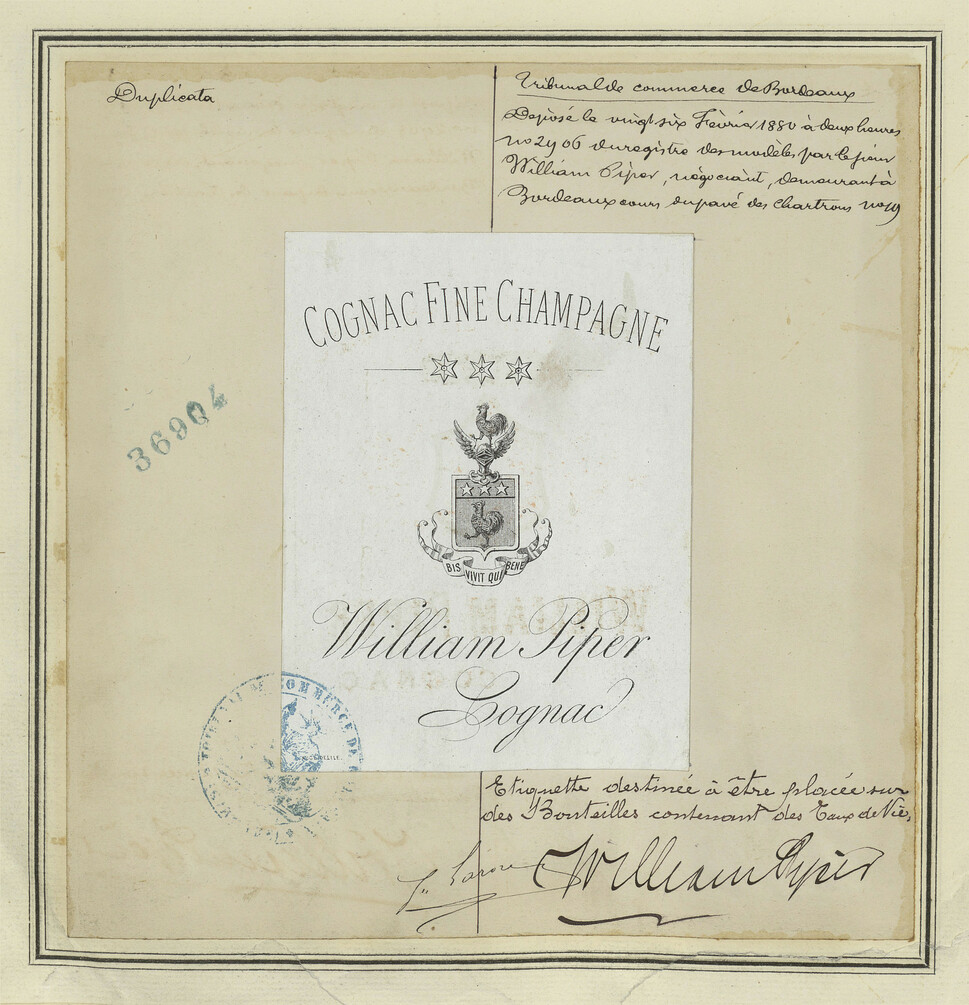 Duplicata
Tribunal de commerce de Bordeaux
Déposé le vingt six Février 1880 à deux heures
no 2906 du registre des modèles par le sieur
William Piper, négociant, demeurant à
Bordeaux cours du pavé des Chartrons no 19
COGNAC FINE CHAMPAGNE
36904
BIS VIVIT QUI BENE
William Piper
Cognac
COMMERCE DE
Etiquette destinée à être placée sur
des Bouteilles contenant des Eaux de Vie.
William Piper